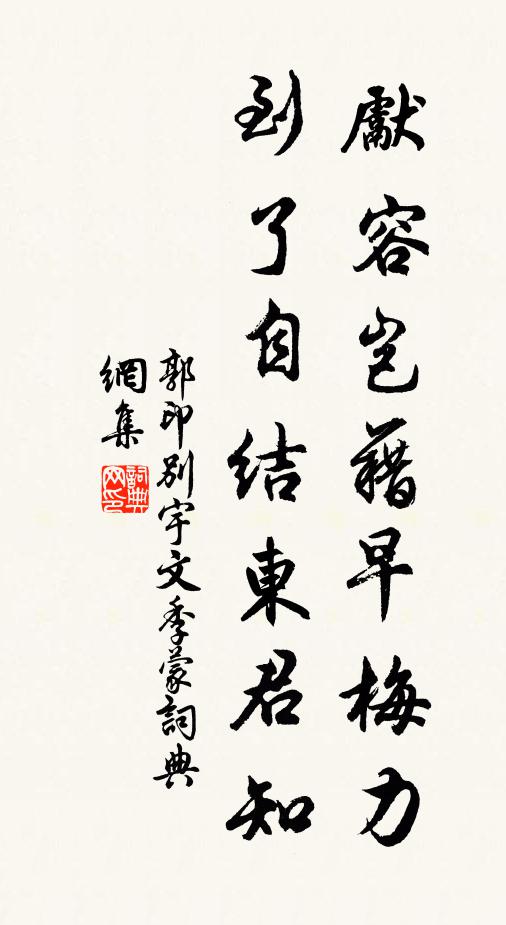 獻容豈藉早梅力
到了自結東君知
郭印別宇文季蒙詞典
網集
詞典網印